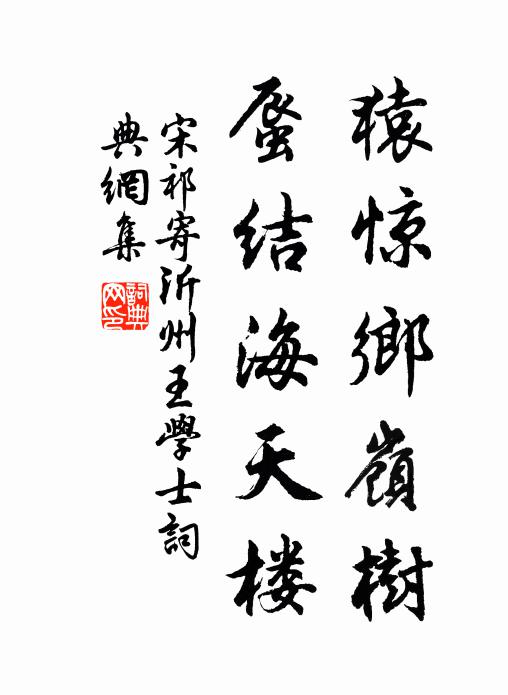 猿惊鄉嶺樹
蜃结海天楼
宋祁寄沂州王學士詞
典網集
詞典
网印